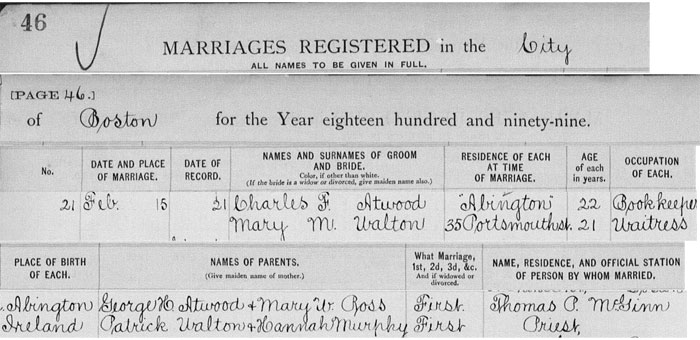 46
MARRIAGES REGISTERED in the City
ALL NAMES TO BE GIVEN IN FULL.
[PAGE 46.]
of Boston for the Year eighteen hundred and ninety-nine.
No. DATE AND PLACE OF MARRIAGE. DATE OF RECORD. NAMES AND SURNAMES OF GROOM AND BRIDE. Color, if other than white. (If the bride is a widow or divorced, give maiden name also.) RESIDENCE OF EACH AT TIME OF MARRIAGE. AGE of each in years. OCCUPATION OF EACH.
21 Feb. 15 21 Charles F. Atwood Abington 22 Bookkeeper
Mary M. Walton 35 Portsmouth st. 21 Waitress
PLACE OF BIRTH OF EACH. NAMES OF PARENTS. (Give maiden name of mother.) What Marriage, 1st, 2d, 3d, &c. And if widowed or divorced. NAME, RESIDENCE, AND OFFICIAL STATION OF PERSON BY WHOM MARRIED.
Abington George H. Atwood + Mary W. Ross First. Thomas P. McGinn
Ireland Patrick Walton + Hannah Murphy First Priest,